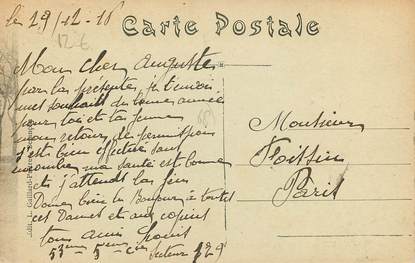 le 29/12-18
Carte Postale
12 €
Mon cher Auguste
par la présente je t'envoi
mes souhaits de bonne année
pour toi et ta femme
mon retour de permission
s'est bien effectué sans
encombre ma santé est bonne
et j'attends la fin
Donne bien le Bonjour à toutes
ces Dames et aux copins
ton ami Louis
53eme 5eme Cie Secteur 129
Monsieur
Paris